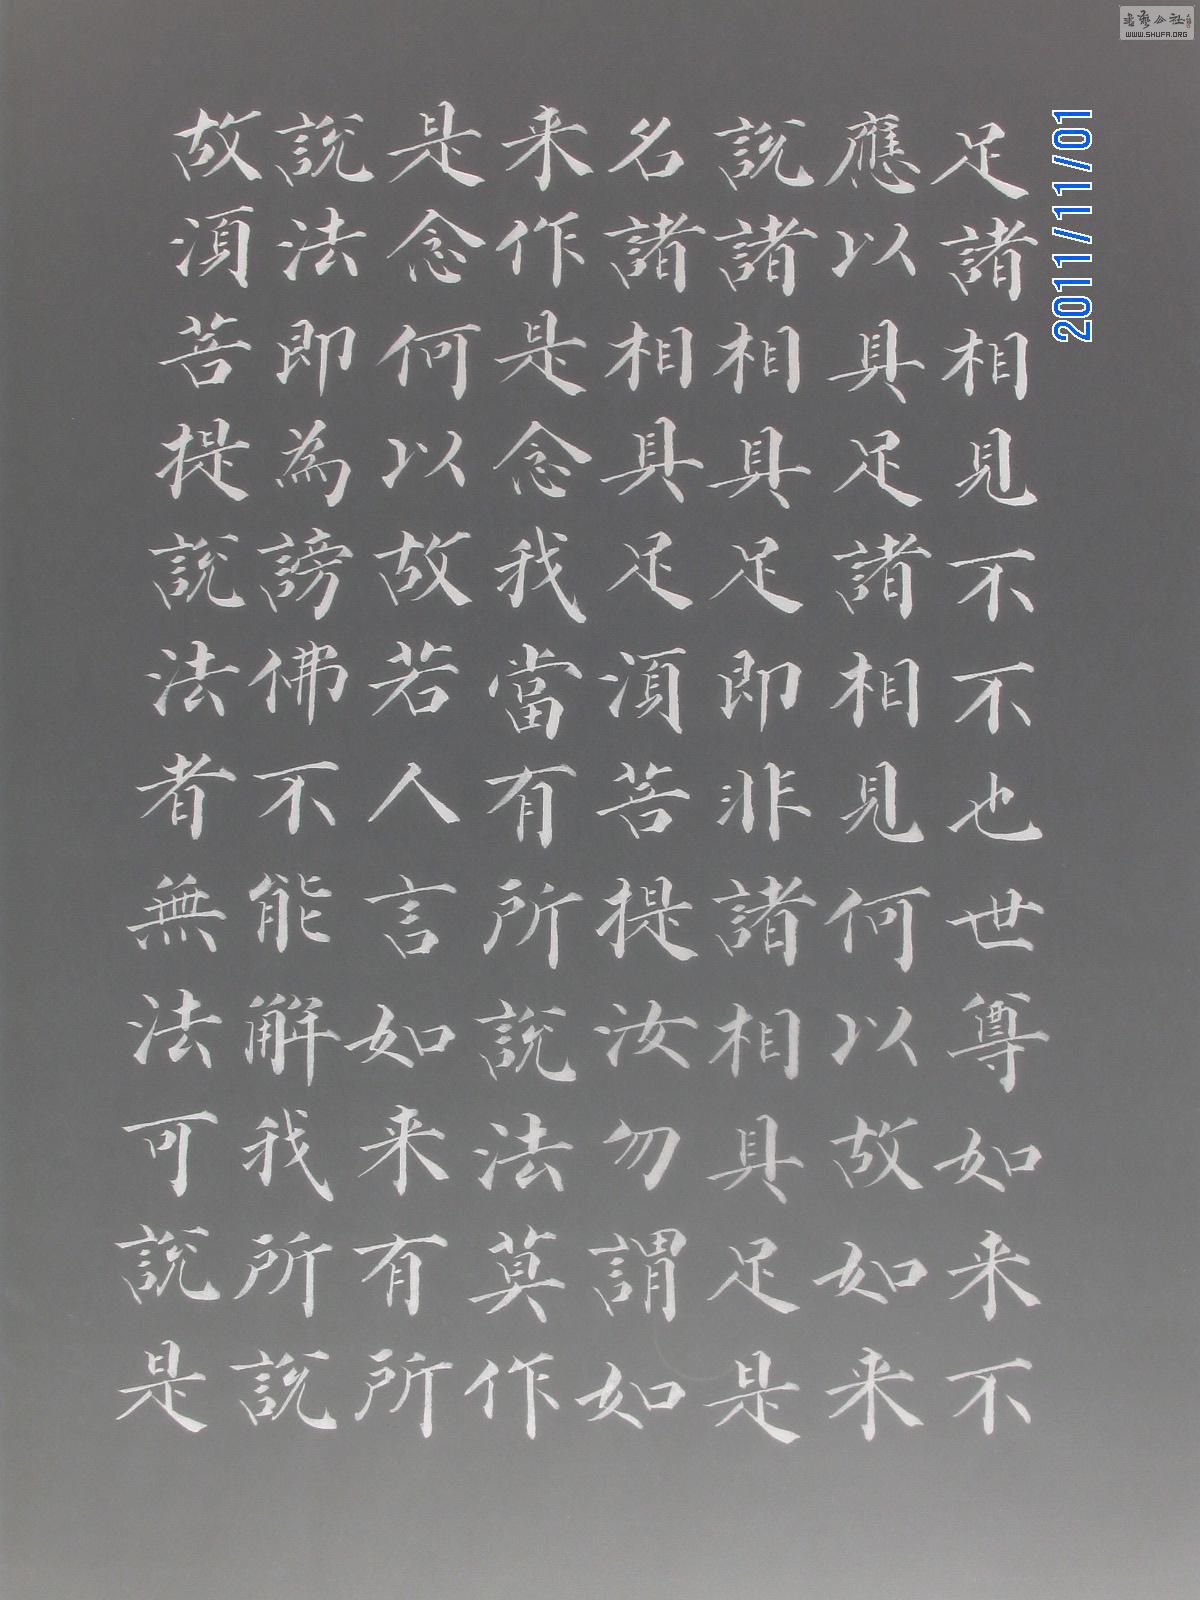 足諸相見不不也世尊如来不
應以具足諸相見何以故如来
說諸相具足即非諸相具足是
名諸相具足湏菩提汝勿謂如
来作是念我當有所說法莫作
是念何以故若人言如来有所
說法即為謗佛不能解我所說
故湏菩提說法者無法可說是
2011/11/01
書藝公社
WWW.SHUFA.ORG